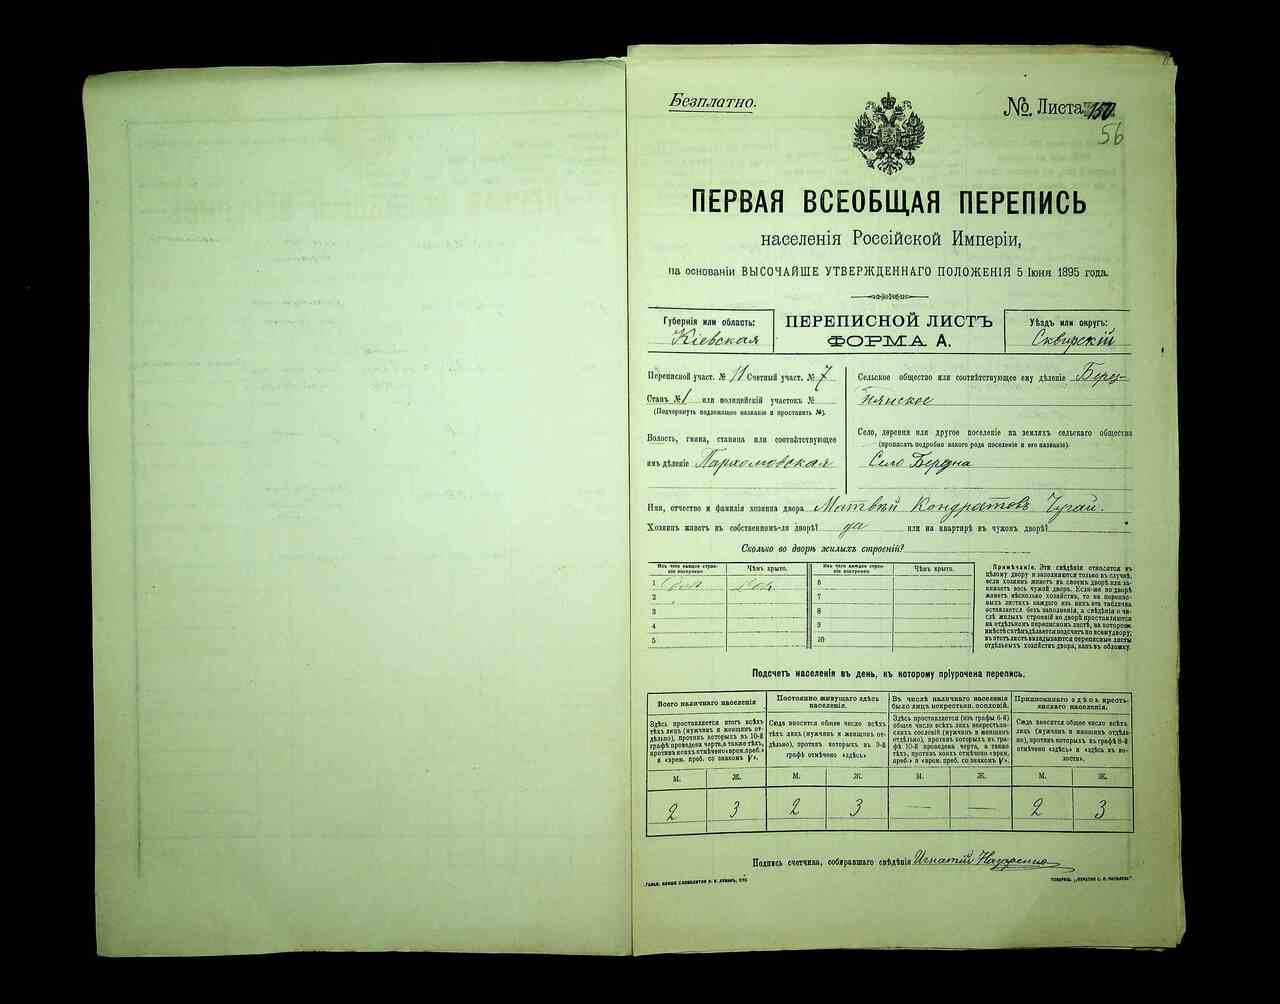 Безплатно.
№. Листа 150
56
ПЕРВАЯ ВСЕОБЩАЯ ПЕРЕПИСЬ
населенія Россійской Имперіи,
на основаніи ВЫСОЧАЙШЕ УТВЕРЖДЕННАГО ПОЛОЖЕНІЯ 5 Іюня 1895 года.
Губернія или область:
Кіевская
ПЕРЕПИСНОЙ ЛИСТЪ
ФОРМА А.
Уѣздъ или округъ:
Сквирскій
Переписной участ. № 11 Счетный участ. № 7
Станъ № 1 или полицейскій участокъ №
(Подчеркнуть надлежащее названіе и проставить №).
Волость, гмина, станица или соотвѣтствующее
имъ дѣленіе Пархомовская
Сельское общество или соотвѣтствующее ему дѣленіе Берез-
нянское
Село, деревня или другое поселеніе на земляхъ сельскаго общества
(прописать подробно какого рода поселеніе и его названіе).
Село
Имя, отчество и фамилія хозяина двора Матвѣй Кондратовъ Чугай.
Хозяинъ живетъ въ собственномъ-ли дворѣ? да или на квартирѣ въ чужомъ дворѣ?
Сколько во дворѣ жилыхъ строеній?
Изъ чего каждое строеніе построено
Чѣмъ крыто.
Изъ чего каждое строеніе построено
Чѣмъ крыто.
1
2
3
4
5
6
7
8
9
10
Примѣчаніе. Эти свѣдѣнія относятся къ
цѣлому двору и заполняются только въ случаѣ,
если хозяинъ живетъ въ своемъ дворѣ или занимаетъ
весь чужой дворъ. Если-же во дворѣ
живетъ нѣсколько хозяйствъ, то на переписныхъ
листахъ каждаго изъ нихъ эта табличка
оставляется безъ заполненія, а свѣдѣнія о числѣ
жилыхъ строеній во дворѣ проставляются
на отдѣльномъ переписномъ листѣ, на которомъ
вмѣстѣ съ тѣмъ дѣлается подсчетъ по всему двору;
въ этотъ листъ вкладываются переписные листы
отдѣльныхъ хозяйствъ двора, какъ въ обложку.
Подсчетъ населенія въ день, къ которому пріурочена перепись.
Всего наличнаго населенія
Здѣсь проставляется итогъ всѣхъ
тѣхъ лицъ (мужчинъ и женщинъ отдѣльно),
противъ которыхъ въ 10-й
графѣ проведена черта, а также тѣхъ,
противъ коихъ отмѣчено «врем. преб.»
и «врем. преб. со знакомъ V».
Постоянно живущаго здѣсь
населенія.
Сюда вносится общее число всѣхъ
тѣхъ лицъ (мужчинъ и женщинъ отдѣльно),
противъ которыхъ въ 9-й
графѣ отмѣчено «здѣсь»
Въ числѣ наличнаго населенія
было лицъ некрестьян. сословій.
Здѣсь проставляется (изъ графы 6-й)
общее число всѣхъ лицъ некрестьянскихъ
сословій (мужчинъ и женщинъ
отдѣльно), противъ которыхъ въ графѣ
10-й проведена черта, а также
тѣхъ, противъ коихъ отмѣчено «врем.
преб.» и «врем. преб. со знакомъ V».
Приписаннаго здѣсь крестьянскаго
населенія.
Сюда вносится общее число всѣхъ
лицъ (мужчинъ и женщинъ отдѣльно),
противъ которыхъ въ графѣ 8-й
отмѣчено «здѣсь» и «здѣсь въ волости».
М. Ж. М. Ж. М. Ж. М. Ж.
2 3 2 3 — — 2 3
Подпись счетчика, собиравшаго свѣдѣнія Игнатій Назаренко